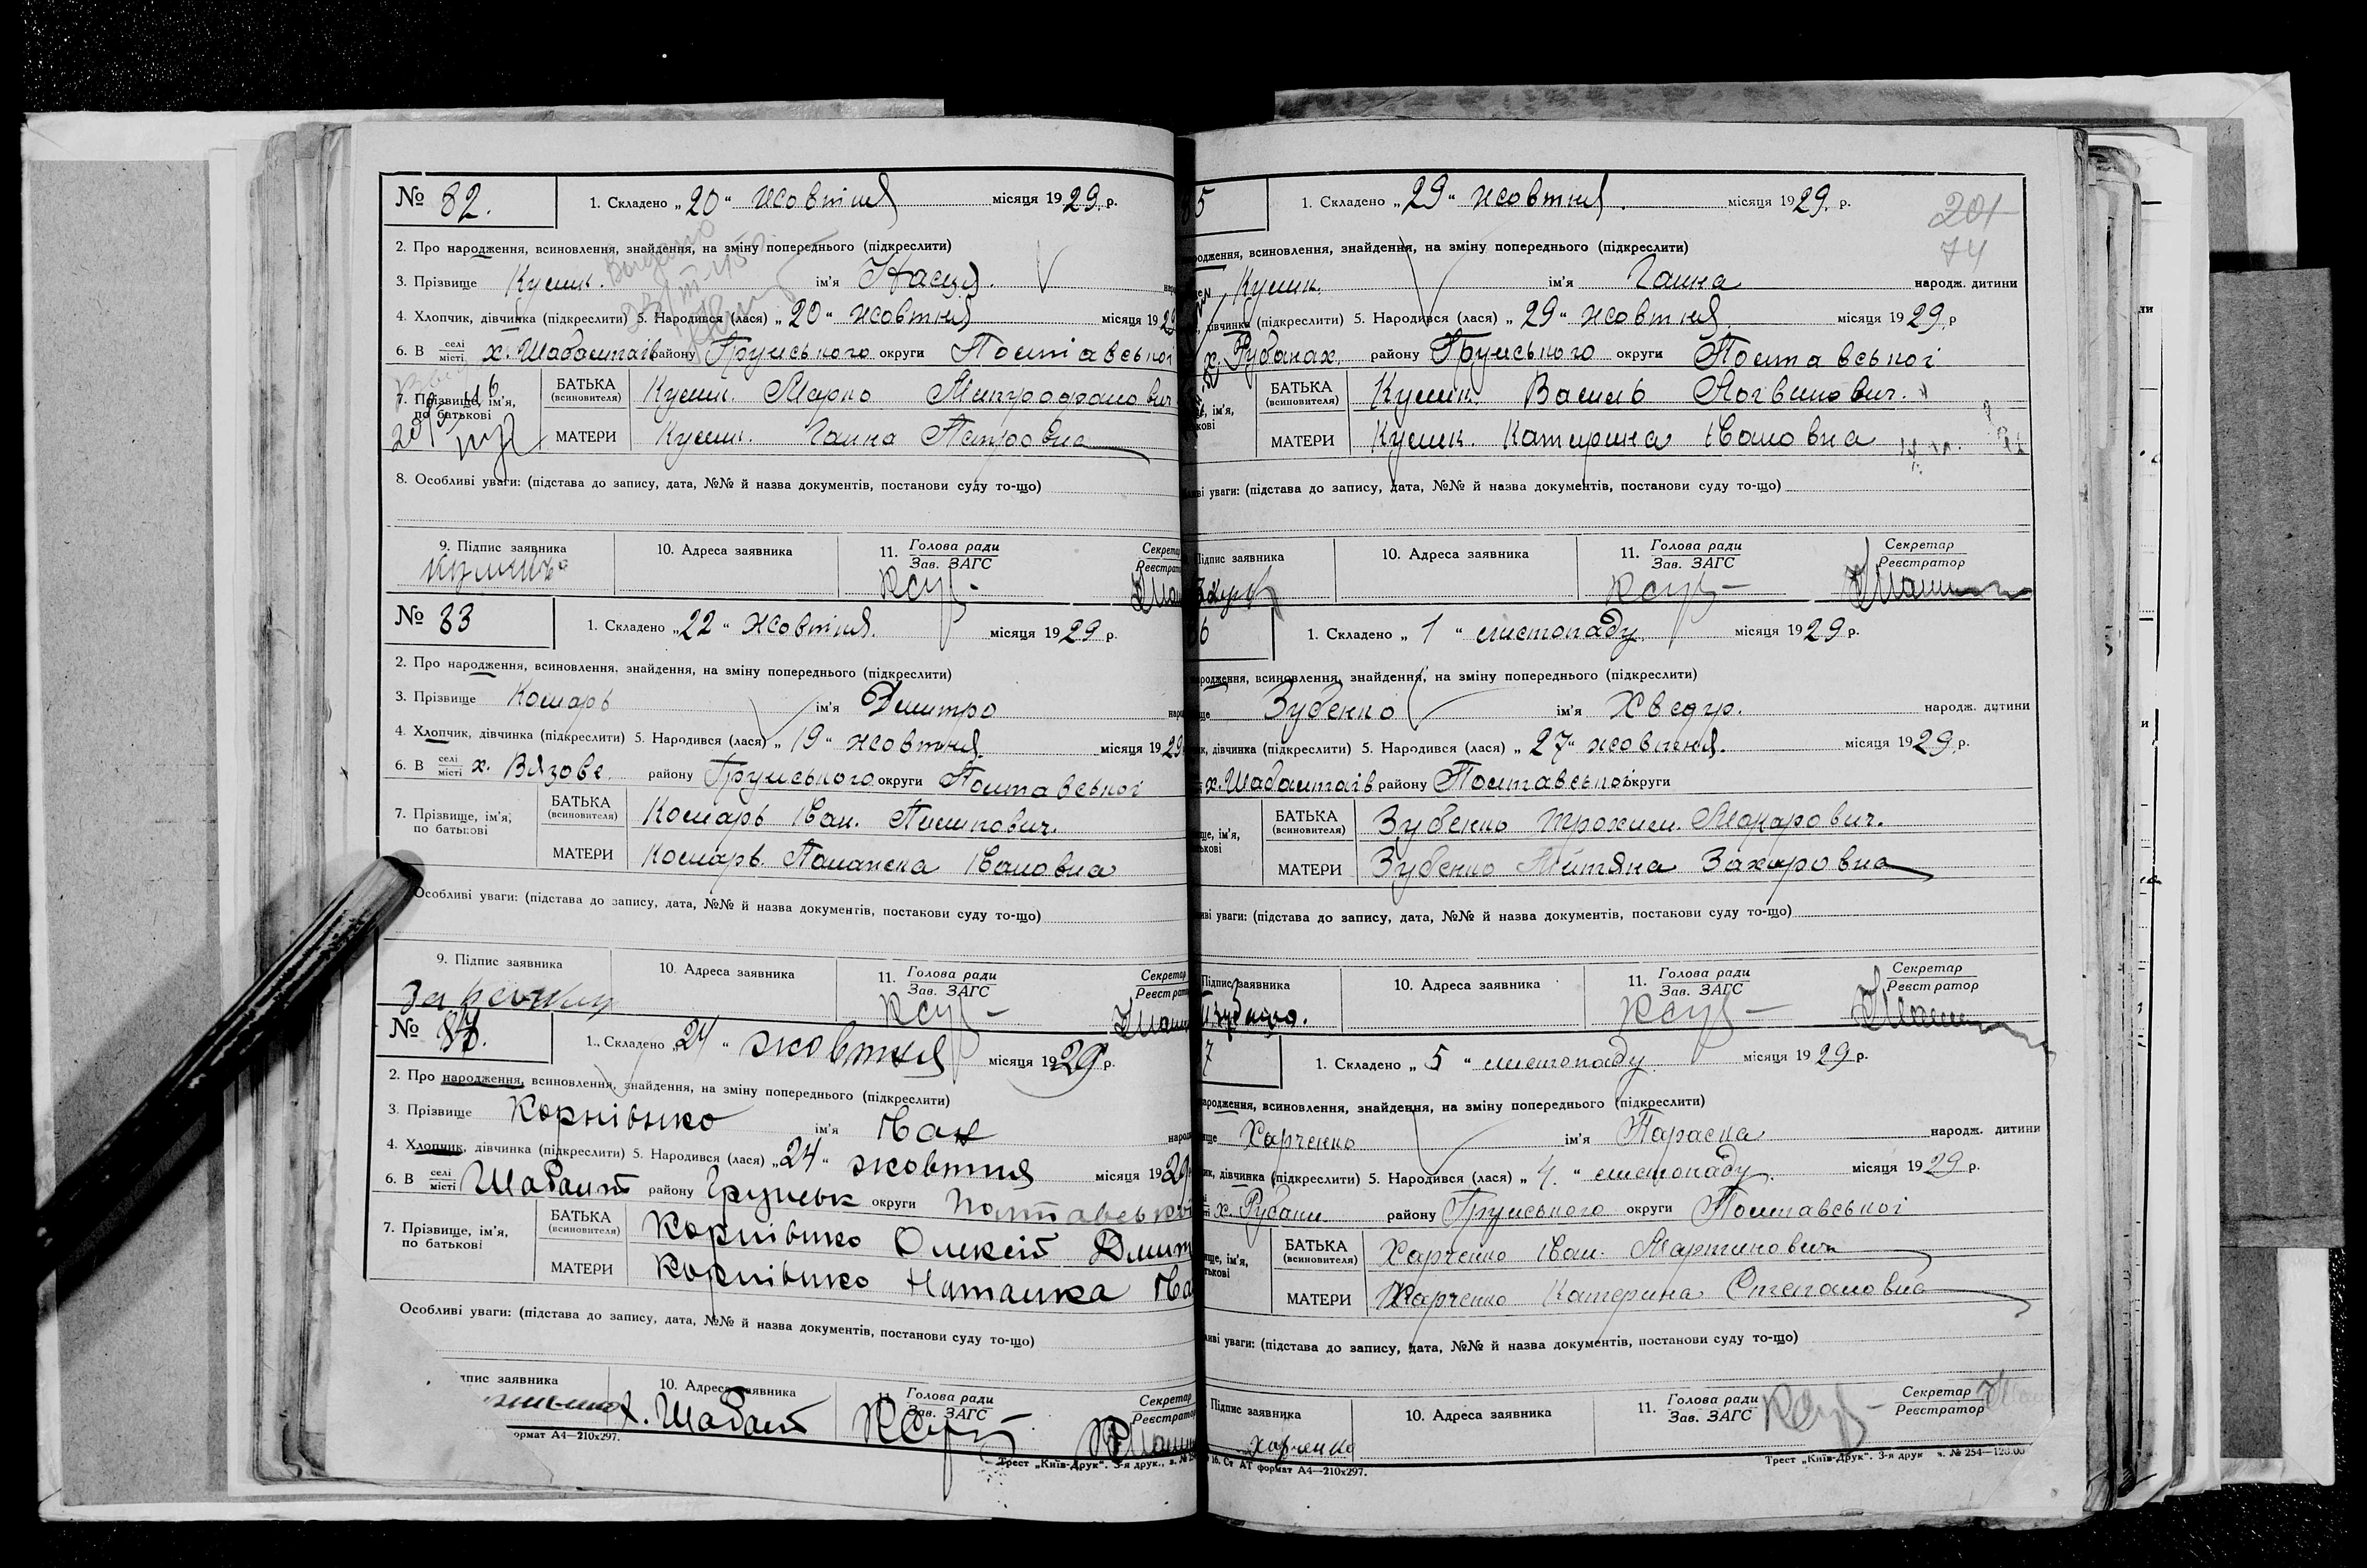 № 82. 1. Складено „20“ жовтня місяця 1929. р.
2. Про народження, всиновлення, знайдення, на зміну попереднього (підкреслити)
3. Прізвище Кулик. ім'я Настя.
4. Хлопчик, дівчинка (підкреслити) 5. Народився (лася) „20“ жовтня місяця 1929
6. В селі місті х. Шабалтаїв району Грунського округи Полтавської
7. Прізвище, ім'я, по батькові
БАТЬКА (всиновителя) Кулик. Марко Митрофанович
МАТЕРИ Кулик. Ганна Петровна
8. Особливі уваги: (підстава до запису, дата, №№ й назва документів, постанови суду то-що)
9. Підпис заявника 10. Адреса заявника 11. Голова ради Зав. ЗАГС Секретар Реєстратор
№ 83 1. Складено „22“ жовтня. місяця 1929 р.
2. Про народження, всиновлення, знайдення, на зміну попереднього (підкреслити)
3. Прізвище Комарь ім'я Дмитро
4. Хлопчик, дівчинка (підкреслити) 5. Народився (лася) „19“ жовтня. місяця 1929
6. В селі місті х. Вязове. району Грунського округи Полтавської
7. Прізвище, ім'я, по батькові
БАТЬКА (всиновителя) Комарь Іван. Пилипович.
МАТЕРИ Комарь. Палажка Івановна
Особливі уваги: (підстава до запису, дата, №№ й назва документів, постанови суду то-що)
9. Підпис заявника 10. Адреса заявника 11. Голова ради Зав. ЗАГС Секретар Реєстратор
№ 84. 1. Складено „24“ жовтня місяця 1929 р.
2. Про народження, всиновлення, знайдення, на зміну попереднього (підкреслити)
3. Прізвище Корнієнко ім'я Іван
4. Хлопчик, дівчинка (підкреслити) 5. Народився (лася) „24“ жовтня місяця 1929
6. В селі місті Шабалт району Грунськ округи Полтавської
7. Прізвище, ім'я, по батькові
БАТЬКА (всиновителя) Корнієнко Олексій Дмит
МАТЕРИ Корнієнко Наталка Іва
Особливі уваги: (підстава до запису, дата, №№ й назва документів, постанови суду то-що)
підпис заявника 10. Адреса заявника 11. Голова ради Зав. ЗАГС Секретар Реєстратор
х. Шабалт
формат А4—210х297. Трест „Київ-Друк“. 3-я друк.
201
74
85 1. Складено „29“ жовтня. місяця 1929. р.
народження, всиновлення, знайдення, на зміну попереднього (підкреслити)
Кулик. ім'я Ганна народж. дитини
дівчинка (підкреслити) 5. Народився (лася) „29“ жовтня місяця 1929 р
х. Рубанах. району Грунського округи Полтавської
БАТЬКА (всиновителя) Кулик. Василь Логвинович.
МАТЕРИ Кулик. Катирина Івановна
уваги: (підстава до запису, дата, №№ й назва документів, постанови суду то-що)
Підпис заявника 10. Адреса заявника 11. Голова ради Зав. ЗАГС Секретар Реєстратор
86 1. Складено „1“ листопаду місяця 1929 р.
народження, всиновлення, знайдення, на зміну попереднього (підкреслити)
Зубенко ім'я Хведур. народж. дитини
дівчинка (підкреслити) 5. Народився (лася) „27“ жовтня. місяця 1929. р.
х. Шабалтаїв району Полтавської округи
БАТЬКА (всиновителя) Зубенко Трохим. Макарович.
МАТЕРИ Зубенко Титяна Захаровна
уваги: (підстава до запису, дата, №№ й назва документів, постанови суду то-що)
Підпис заявника 10. Адреса заявника 11. Голова ради Зав. ЗАГС Секретар Реєстратор
Зубенко.
7 1. Складено „5“ листопаду. місяця 1929 р.
народження, всиновлення, знайдення, на зміну попереднього (підкреслити)
Харченко ім'я Параска народж. дитини
дівчинка (підкреслити) 5. Народився (лася) „4.“ листопаду. місяця 1929 р.
х. Рубани. району Грунського округи Полтавської
БАТЬКА (всиновителя) Харченко Іван. Мартинович
МАТЕРИ Харченко Катерина Степановна
уваги: (підстава до запису, дата, №№ й назва документів, постанови суду то-що)
Підпис заявника 10. Адреса заявника 11. Голова ради Зав. ЗАГС Секретар Реєстратор
Харченко
формат А4—210х297. Трест „Київ-Друк“. 3-я друк